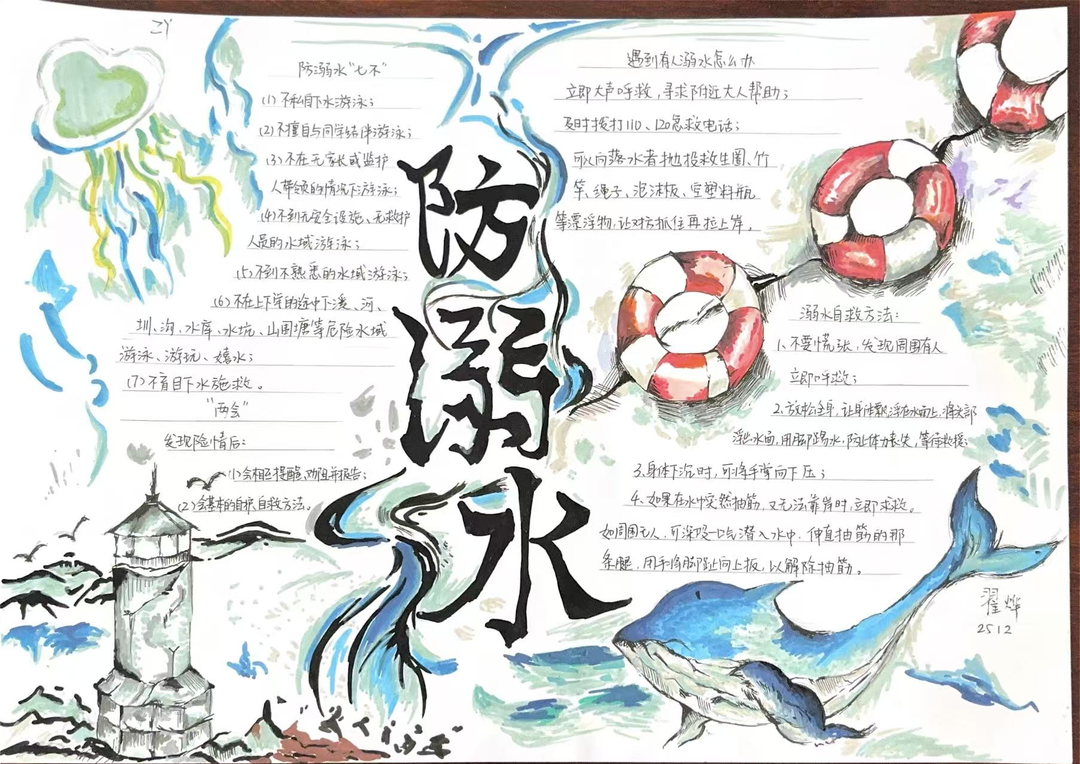 防溺水"七不"
(1)不私自下水游泳；
(2)不擅自与同学结伴游泳；
(3)不在无家长或监护
人带领的情况下游泳；
(4)不到无安全设施、无救护
人员的水域游泳；
(5)不到不熟悉的水域游泳；
(6)不在上下学的途中下溪、河、
圳、沟、水库、水坑、山围塘等危险水域
游泳、游玩、嬉水；
(7)不盲目下水施救。
"两会"
发现险情后：
(1)会相互提醒、劝阻并报告；
(2)会基本的自护、自救方法。
防溺水
遇到有人溺水怎么办
立即大声呼救，寻求附近大人帮助；
及时拨打110、120急救电话；
可以向落水者抛投救生圈、竹
竿、绳子、泡沫板、空塑料瓶
等漂浮物，让对方抓住再拉上岸。
溺水自救方法：
1、不要慌张，发现周围有人
立即呼救；
2、放松全身，让身体飘浮在水面上，将头部
浮出水面，用脚踢水，防止体力丧失，等待救援；
3、身体下沉时，可将手掌向下压；
4、如果在水中突然抽筋，又无法靠岸时，立即求救。
如周围无人，可深吸一口气潜入水中，伸直抽筋的那
条腿，用手将脚趾向上扳，以解除抽筋。
翟烨
2512